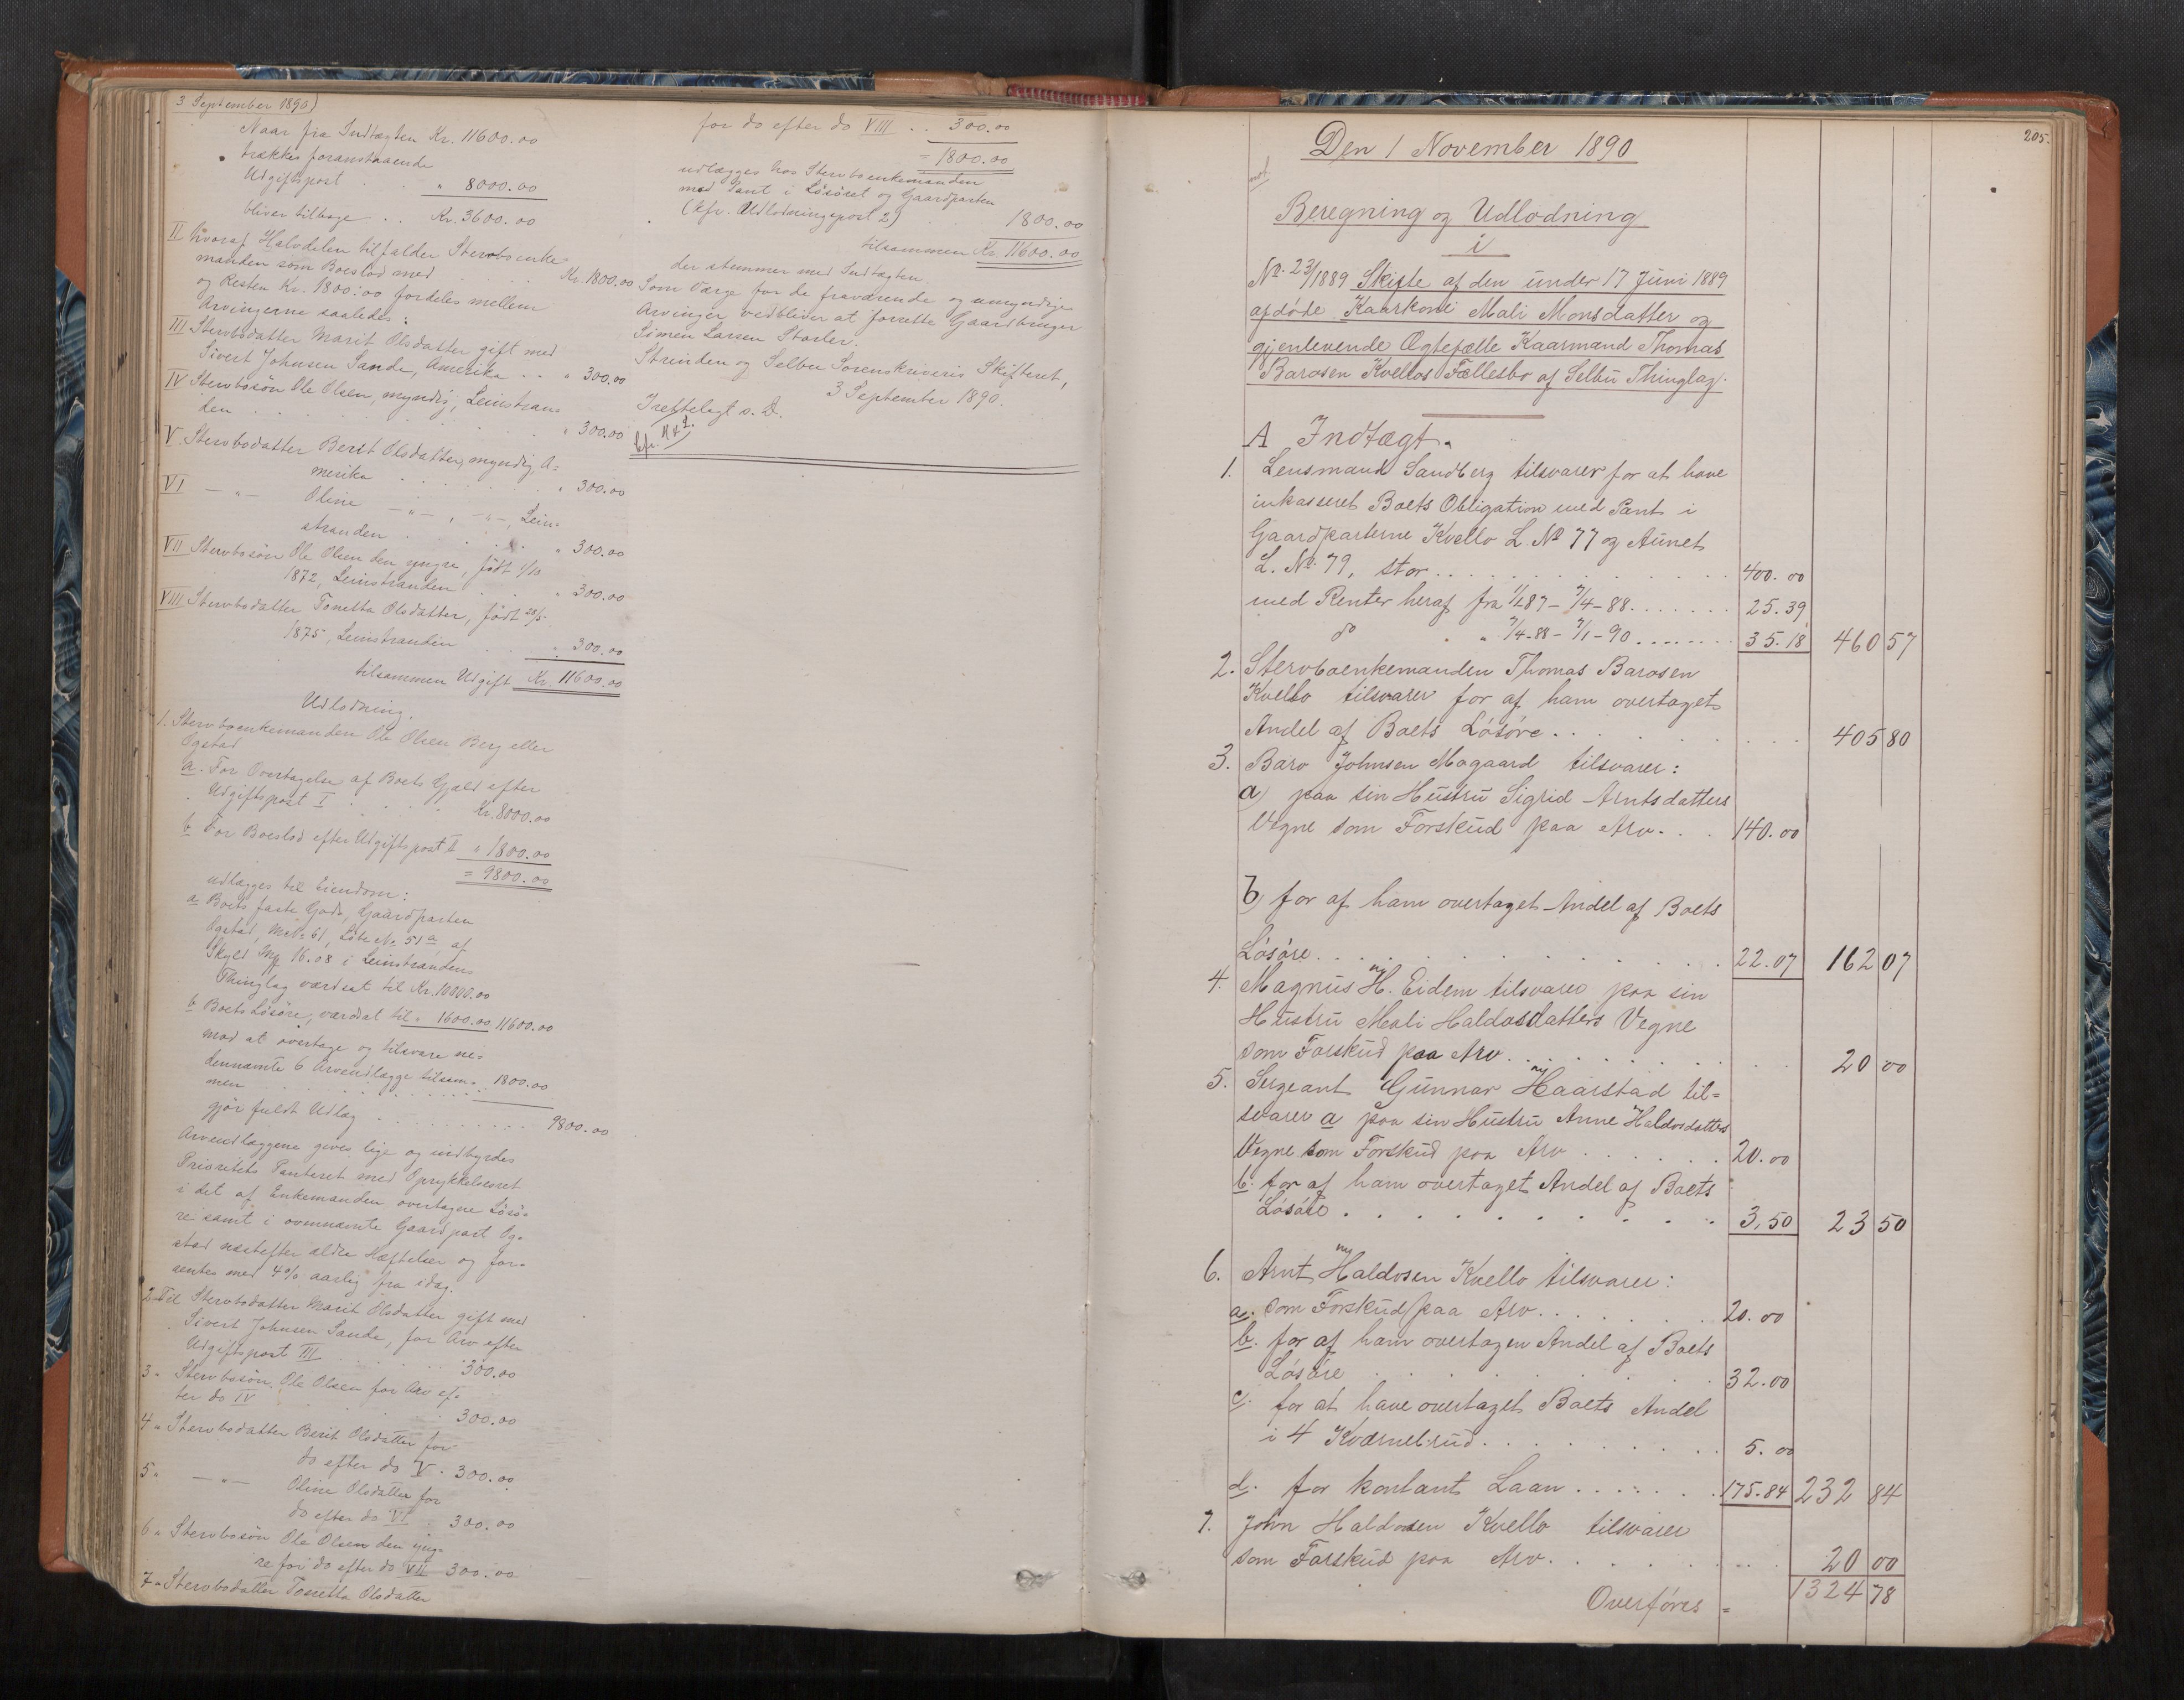 3 September 1890)
Naar fra Indtægten Kr. 11600.00
trækkes foranstaaende
Udgiftspost . . " 8000.00
bliver tilbage . . Kr. 3600.00
II hvoraf Halvdelen tilfalder Stervboenke-
manden som Boeslod med . . . Kr. 1800.00
og Resten Kr. 1800:00 fordeles mellem
Arvingerne saaledes:
III Stervbodatter Marit Olsdatter gift med
Sivert Johnsen Sande, Amerika . . " 300.00
IV Stervbosön Ole Olsen, myndig, Leinstran-
den . . . . . . " 300.00
V Stervbodatter Berit Olsdatter, myndig, A=
merika . . . . . . " 300.00
VI — " — Oline — " — , — " —, Lein=
stranden . . . . . " 300.00
VII Stervbosön Ole Olsen den yngre, födt 1/10
1872, Leinstranden . . . " 300.00
VIII Stervbodatter Tonetta Olsdatter, födt 28/5
1875, Leinstranden . . . " 300.00
tilsammen Udgift Kr. 11600.00
Udlodning.
1. Stervboenkemanden Ole Olsen Berg eller
Ogstad
a. For Overtagelse af Boets Gjæld efter
Udgiftspost I . . . . Kr. 8000.00
b For Boeslod efter Udgiftspost II " 1800.00
= 9800.00
udlægges til Eiendom:
a Boets faste Gods, Gaardparten
Ogstad, Mat. No 61, Löbe No 51a, af
Skyld Mk. 16.08 i Leinstrandens
Thinglag værdsat til Kr. 10000.00
b Boets Lösöre, værdsat til " 1600.00 11600.00
mod at overtage og tilsvare ne-
dennævnte 6 Arveudlægge tilsam-
men . . . . . . . 1800.00
gjör fuldt Udlæg . . . . . . . . . . 9800.00
Arveudlæggene gives lige og indbyrdes
Prioritets Panteret med Oprykkelsesret
i det af Enkemanden overtagne Lösö-
re samt i ovennævnte Gaardpart Og-
stad næstefter ældre Hæftelser og for-
rentes med 4% aarlig fra idag.
2. Til Stervbodatter Marit Olsdatter gift med
Sivert Johnsen Sande, for Arv efter
Udgiftspost III . . . . 300.00
3 " Stervbosön Ole Olsen for Arv ef-
ter do IV . . . . 300.00
4 " Stervbodatter Berit Olsdatter for
do efter do V . 300.00
5 " — " — Oline Olsdatter for
do efter do VI . 300.00
6 " Stervbosön Ole Olsen den yng-
re for do efter do VII 300.00
7 " Stervbodatter Tonetta Olsdatter
for do efter do VIII . . 300.00
= 1800.00
udlægges hos Stervboenkemanden
med Pant i Lösöret og Gaardparten
(kfr. Udlodningspost 2) . . 1800.00
tilsammen Kr. 11600.00
der stemmer med Indtægten.
Som Værge for de fraværende og umyndige
Arvinger vedbliver at forrette Gaardbruger
Simen Larsen Starler.
Strinden og Selbu Sorenskriveris Skifteret,
3 September 1890.
Irettelagt s. D.
205.
Den 1 November 1890
Beregning og Udlodning
i
No. 23/1889 Skifte af den under 17 Juni 1889
afdöde Kaarkone Mali Monsdatter og
gjenlevende Ægtefælle Kaarmand Thomas
Barosen Kvellos Fællesbo af Selbu Thinglag.
A Indtægt.
1. Lensmand Sandberg tilsvarer for at have
inkasseret Boets Obligation med Pant i
Gaardparterne Kvello L. No 77 og Aunet
L. No. 79, stor . . . . . . . . . 400.00
med Renter heraf fra 1/2 87 – 7/4 – 88 . . . . . . . 25.39
do " " 7/4 – 88 – 7/1 – 90 . . . . . . . . 35.18 460 57
2. Stervboenkemanden Thomas Barosen
Kvello tilsvarer for af ham overtaget
Andel af Boets Lösöre . . . . . . . . . 405 80
3. Baro Johnsen Mogaard tilsvarer:
a) paa sin Hustru Sigrid Arntsdatters
Vegne som Forskud paa Arv . . . 140.00
b) for af ham overtaget Andel af Boets
Lösöre . . . . . . . . . . . . 22.07 162 07
4. Magnus H. Eidem tilsvarer paa sin
Hustru Mali Haldosdatters Vegne
som Forskud paa Arv . . . . . . . . . . . 20 00
5. Sergeant Gunnar Haarstad til=
svarer a paa sin Hustru Anne Haldosdatters
Vegne som Forskud paa Arv . . . . . . 20.00
b. for af ham overtaget Andel af Boets
Lösöre . . . . . . . . . . . . 3,50 23 50
6. Arnt Haldosen Kvello tilsvarer:
a. som Forskud paa Arv . . . . . . . 20.00
b. for af ham overtagen Andel af Boets
Lösöre . . . . . . . . . . 32.00
c. for at have overtaget Boets Andel
i 4 Kværnebrud . . . . . . . . . . 5.00
d. for kontant Laan . . . . . . . 175.84 232 84
7. John Haldosen Kvello tilsvarer
som Forskud paa Arv . . . . . . . . . . 20 00
Overföres = 1324 78